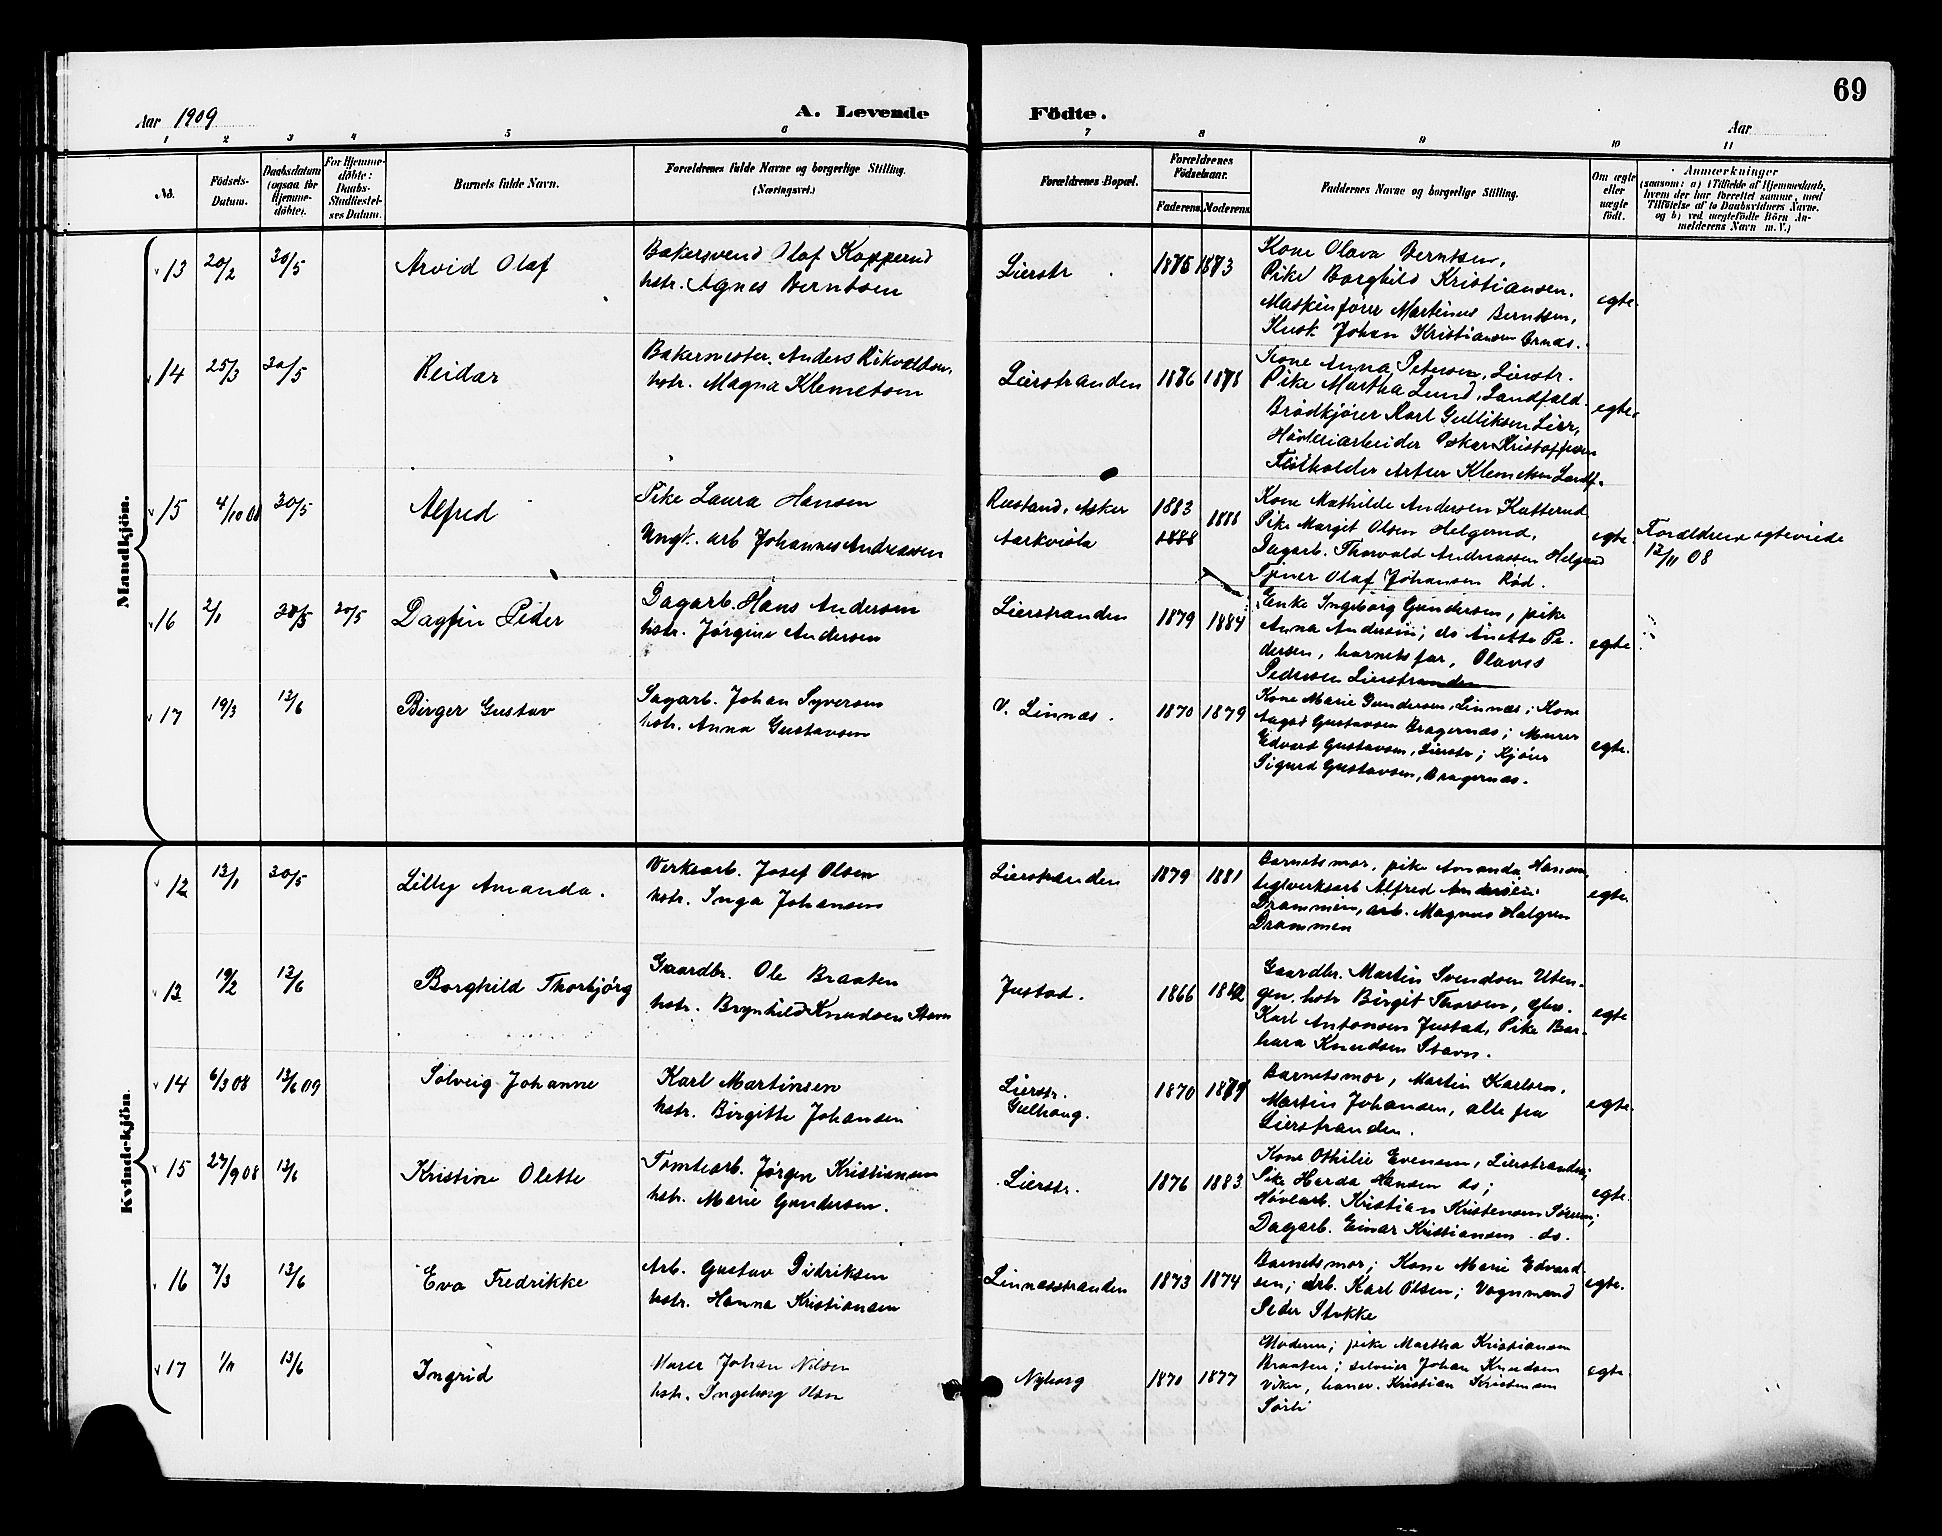 69
Aar 1909
A. Levende Födte.
Aar
1 2 3 4 5 6 7 8 9 10 11
No.
Födsels-Datum.
Daabsdatum (ogsaa for Hjemmedöbte).
For Hjemmedöbte: Daabs-Stadfæstelses Datum.
Barnets fulde Navn.
Forældrenes fulde Navne og borgerlige Stilling. (Næringsvei.)
Forældrenes Bopæl.
Forældrenes Födselsaar.
Faderens. Moderens.
Faddernes Navne og borgerlige Stilling.
Om ægte eller uægte födt.
Anmærkninger
(saasom: a) i Tilfælde af Hjemmedaab, hvem der har forrettet samme, med Tilföielse af to Daabsvidners Navne, og b) ved uægtefödte Börn Anmelderens Navn m. V.)
Mandkjön.
13 20/2 30/5 Arvid Olaf
Bakersvend Olaf Kopperud
hstr. Agnes Berntsen
Lierstr. 1875 1873
Kone Olava Berntsen,
Pike Borghild Kristiansen.
Maskinfører Martinus Berntsen,
Kusk Johan Kristiansen
egte.
14 25/3 30/5 Reidar
Bakermester Anders Rikvoldsen,
hstr. Magna Klemetsen
Lierstranden 1876 1878
Kone Anna Petersen, Lierstr.
Pike Martha Lund, Landfald.
Brødkjører Karl Gulliksen Lier,
Høvleriarbeider Oskar Kristoffersen
Flødholder Artur Klemetsen Landf.
egte.
15 4/10 08 30/5 Alfred
Pike Laura Hansen
Ungk. arb Johannes Andreassen
Rustand, Asker 1883
Aarkviøla 1888 1888
Kone Mathilde Andersen Katterud
Pike Margit Olsen Helgerud,
Dagarb. Thorvald Andreassen Helgerud
Tjener Olaf Johansen Rød.
egte.
Forældrene egteviede
12/11 08
16 2/1 30/5 30/5 Dagfin Peder
Dagarb. Hans Andersen
hstr. Jørgine Andersen
Lierstranden 1879 1884
Enke Ingeborg Gundersen, pike
Anna Andersen; do Anette Pe-
dersen, barnets far, Olaves
Pedersen Lierstranden
egte
17 19/3 13/6 Birger Gustav
Sagarb. Johan Syversen
hstr. Anna Gustavsen
V. Linnæs. 1870 1879
Kone Marie Gundersen, Linnæs; Kone
Aagot Gustavsen Bragernæs; Murer
Edvard Gustavsen, Lierstr; Kjører
Sigurd Gustavsen, Bragernæs.
egte.
Kvindekjön.
12 13/1 30/5 Lilly Amanda.
Verksarb. Josef Olsen
hstr. Inga Johansen
Lierstranden 1879 1881
Barnets mor, pike Amanda Hansen,
teglverksarb Alfred Andersen
Drammen, arb. Magnus Halgren
Drammen
egte.
13 19/2 13/6 Borghild Thorbjørg
Gaardbr. Ole Braaten
hstr. Brynhild Knudsen Stavn
Justad. 1866 1862
Gaardbr. Martin Svendsen Uten-
gen. hstr Birgit Thorsen,
Karl Antonsen Justad, Pike Bar-
bara Knudsen Stavn.
egte
14 6/3 08 13/6 09 Solveig Johanne
Karl Martinsen
hstr. Birgitte Johansen
Lierstr.
Gulhaug. 1870 1879
Barnets mor, Martin Karlsen,
Martin Johansen, alle fra
Lierstranden.
egte.
15 27/9 08 13/6 Kristine Olette
Tomtearb. Jørgen Kristiansen
hstr. Marie Gundersen.
Lierstr. 1876 1883
Kone Othilie Evensen, Lierstranden;
Pike Harda Hansen do;
Høvlarb. Kristian Kristensen Sørum;
Dagarb. Einar Kristiansen do.
egte.
16 7/3 13/6 Eva Fredrikke
Arb. Gustav Didriksen
hstr. Hanna Kristiansen
Linnæsstranden 1873 1874
Barnets mor; Kone Marie Edvard-
sen; arb. Karl Olsen; Vognmand
Peder Stokke
egte.
17 1/11 13/6 Ingrid
Murer Johan Nilsen
hstr. Ingeborg Olsen
Nyborg 1870 1877
Moderen; pike Martha Kristiansen
Braaten; Johan Knudsen
Viker, Kristian Kristensen
Sørli
egte.